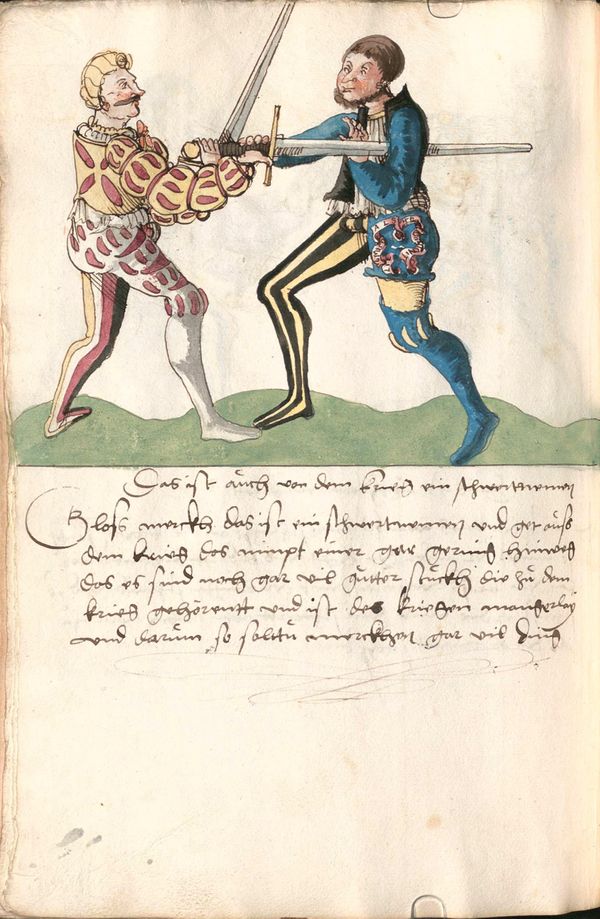 Das ist auch von dem krieg ein schwertnemen
Gloss merckh das ist ein schwertnemen und get auss
dem krieg das nimpt einer gar gering hinweg
das es sind noch gar vil gůtter stuckh die zů dem
krieg gehörentt und ist des kriegen mangerlay
und darum so solttu merckhen gar vil ding